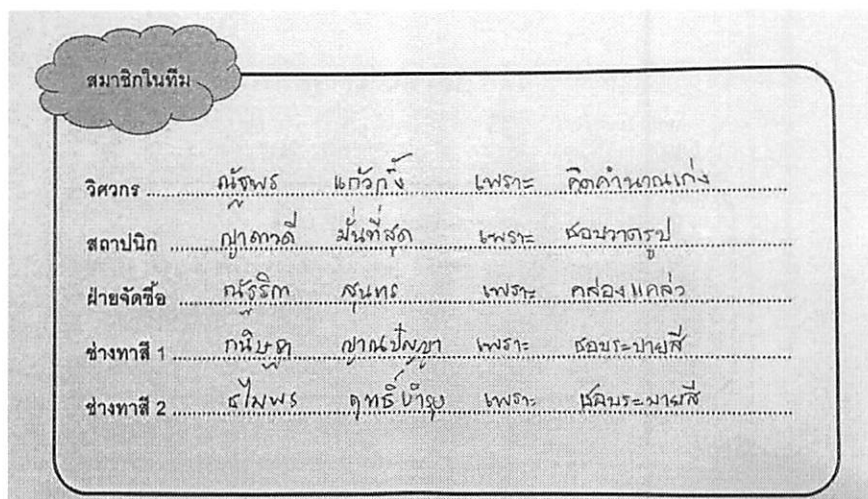 สมาชิกในทีม
วิศวกร ณัฐพร แก้วกิ้ง เพราะ คิดคำนวณเก่ง
สถาปนิก ญาตาวดี มั่นที่สุด เพราะ ชอบวาดรูป
ฝ่ายจัดซื้อ ณัฐริกา สุนทร เพราะ คล่องแคล่ว
ช่างทาสี 1 กนิษฐา ญาณปัญญา เพราะ ชอบระบายสี
ช่างทาสี 2 เพราะ ชอบระบายสี